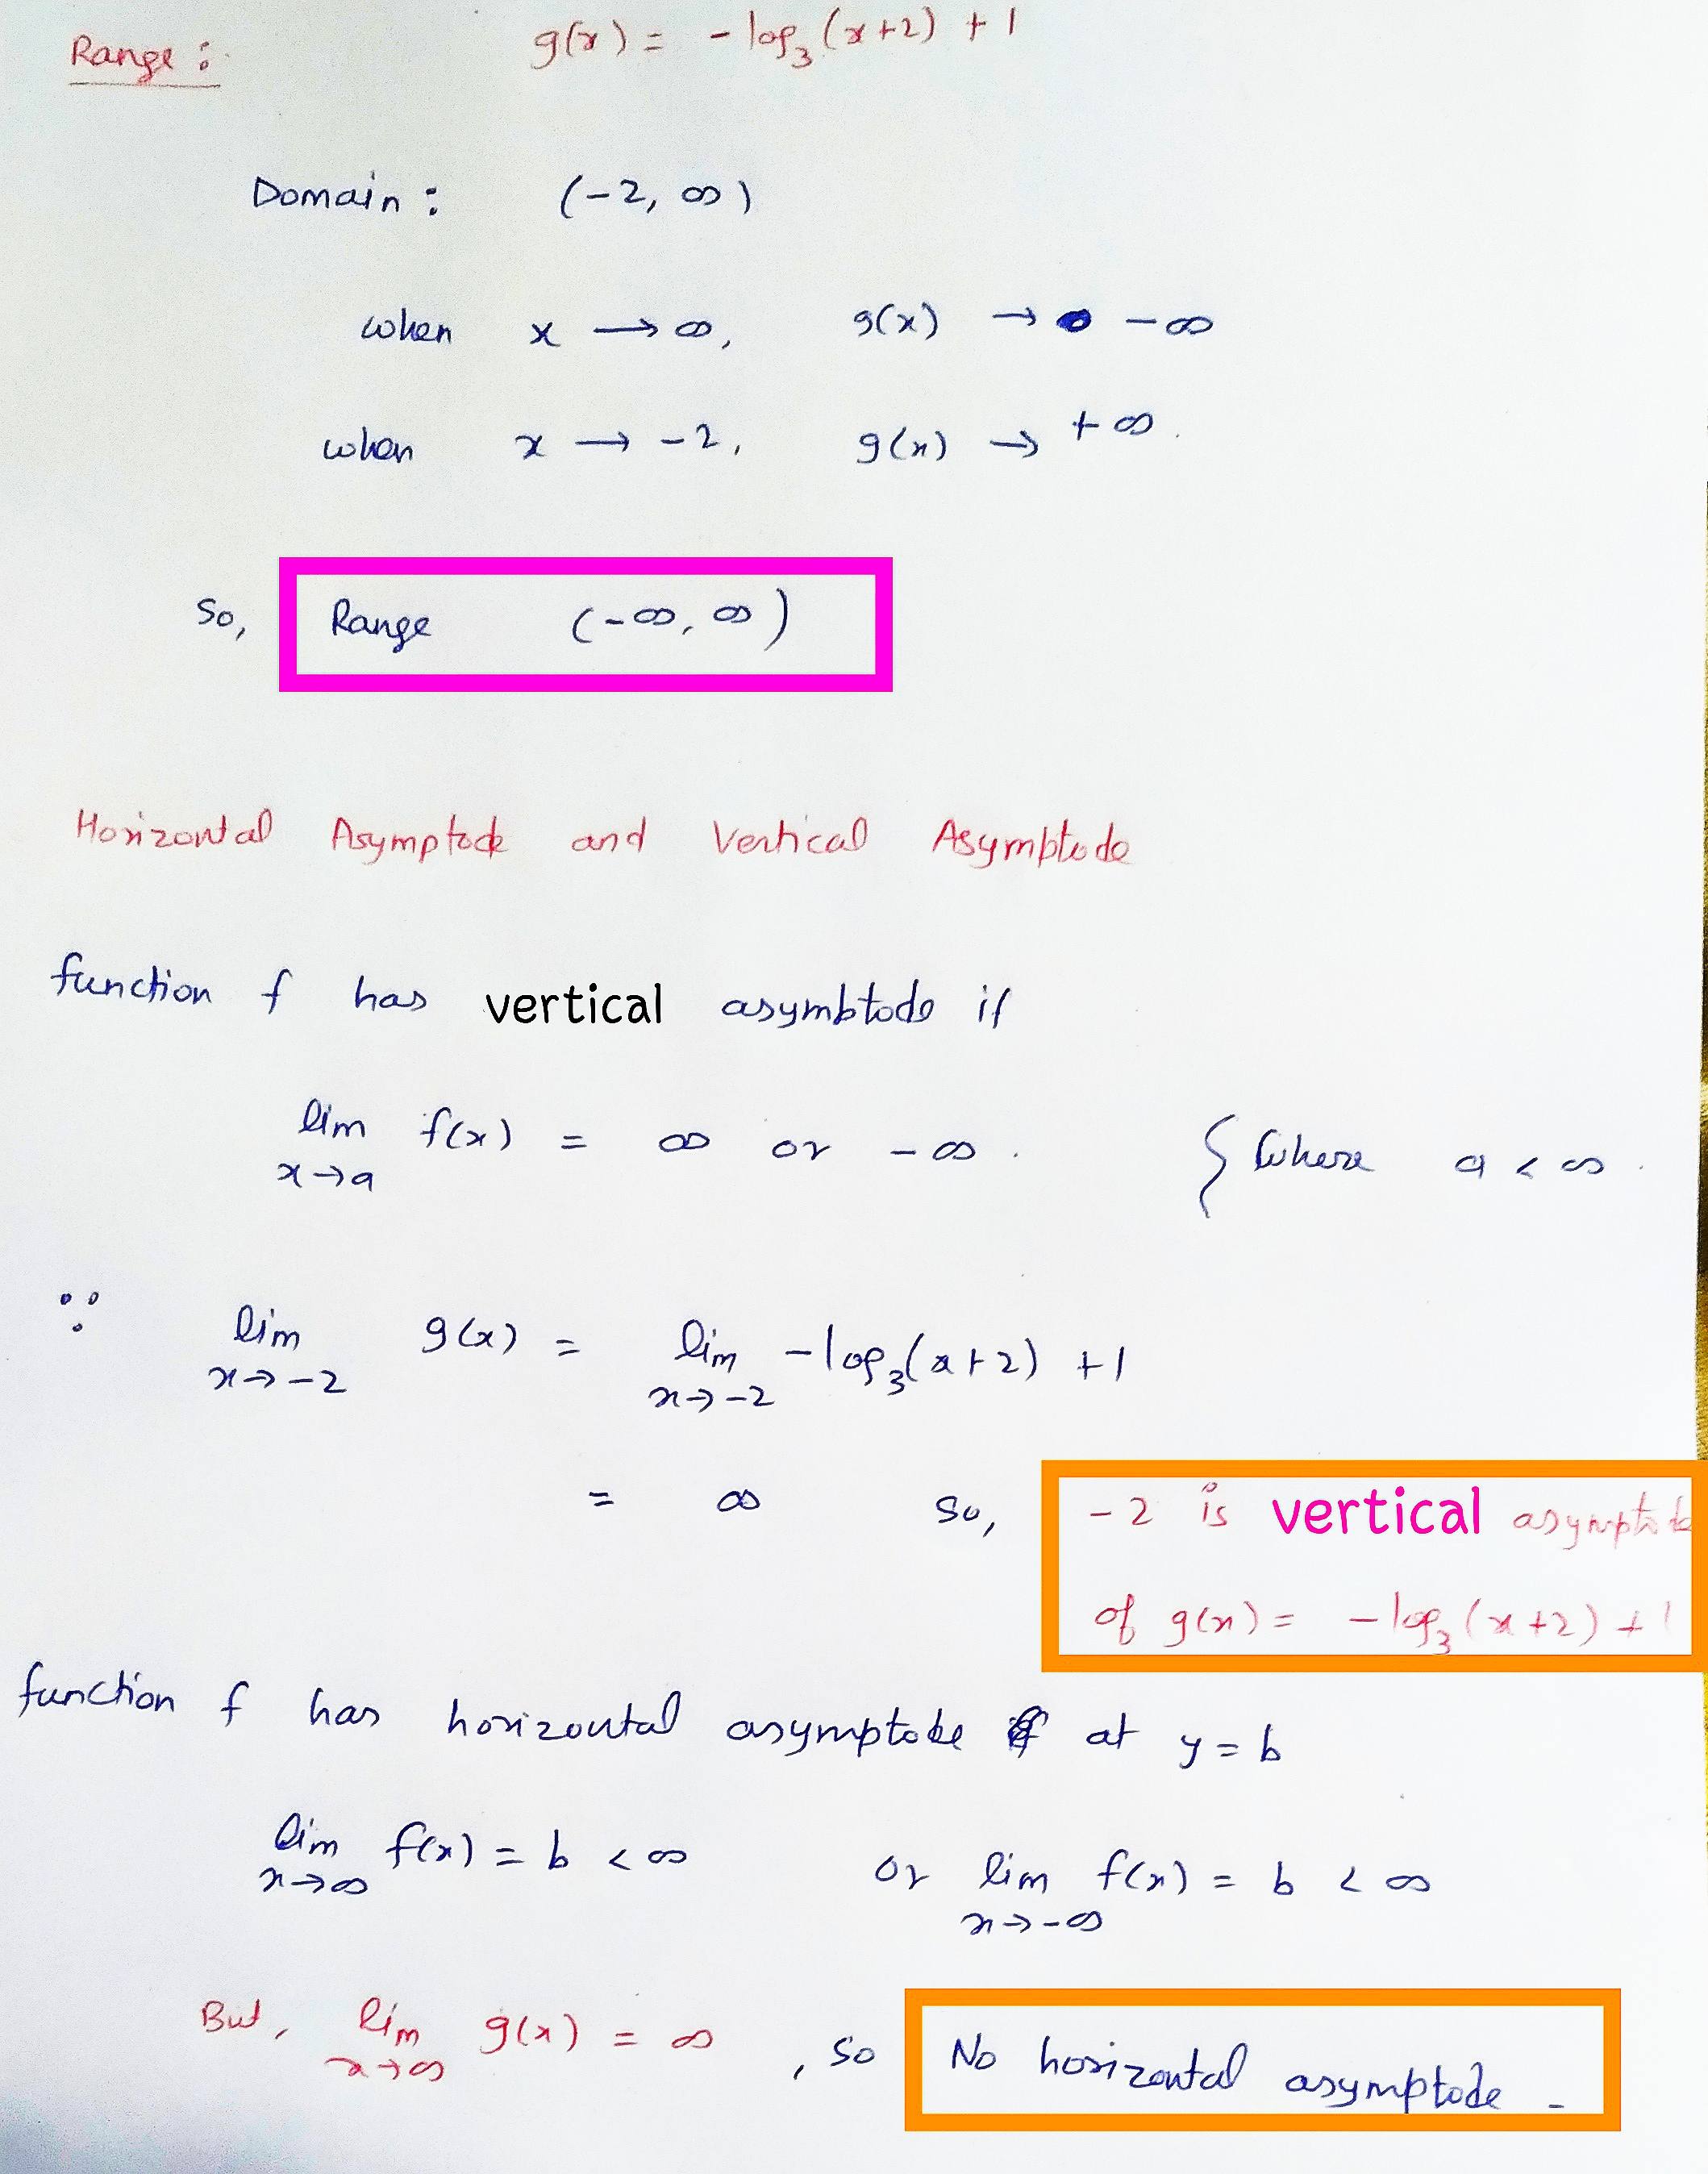 Range : g(x) = - log₃(x+2) + 1
Domain : (-2, ∞)
when x → ∞, g(x) → -∞
when x → -2, g(x) → +∞.
So, Range (-∞, ∞)
Horizontal Asymptode and Vertical Asymbtode
function f has vertical asymbtode if
lim x→a f(x) = ∞ or -∞. { where a < ∞.
∵ lim x→-2 g(x) = lim x→-2 -log₃(x+2) +1
= ∞ so, -2 is vertical asymptote
of g(x) = -log₃(x+2)+1
function f has horizontal asymptote at y = b
lim x→∞ f(x) = b < ∞ or lim x→-∞ f(x) = b < ∞
But, lim x→∞ g(x) = ∞, so No horizontal asymptode -